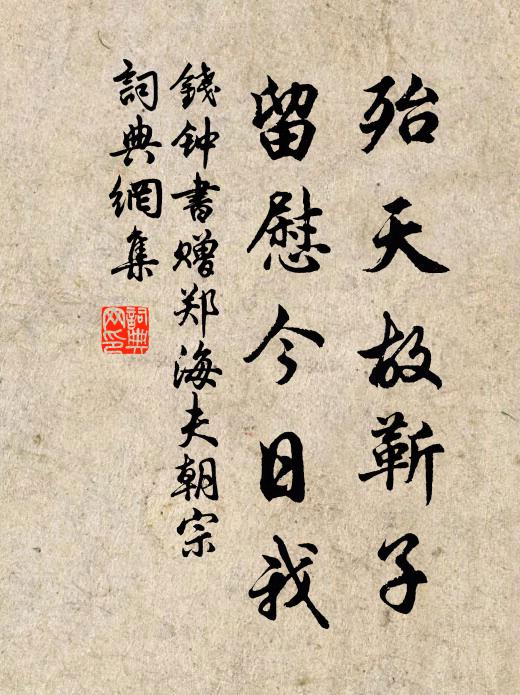 殆天故靳子
留慰今日我
錢钟書赠郑海夫朝宗
詞典網集
詞典
网印